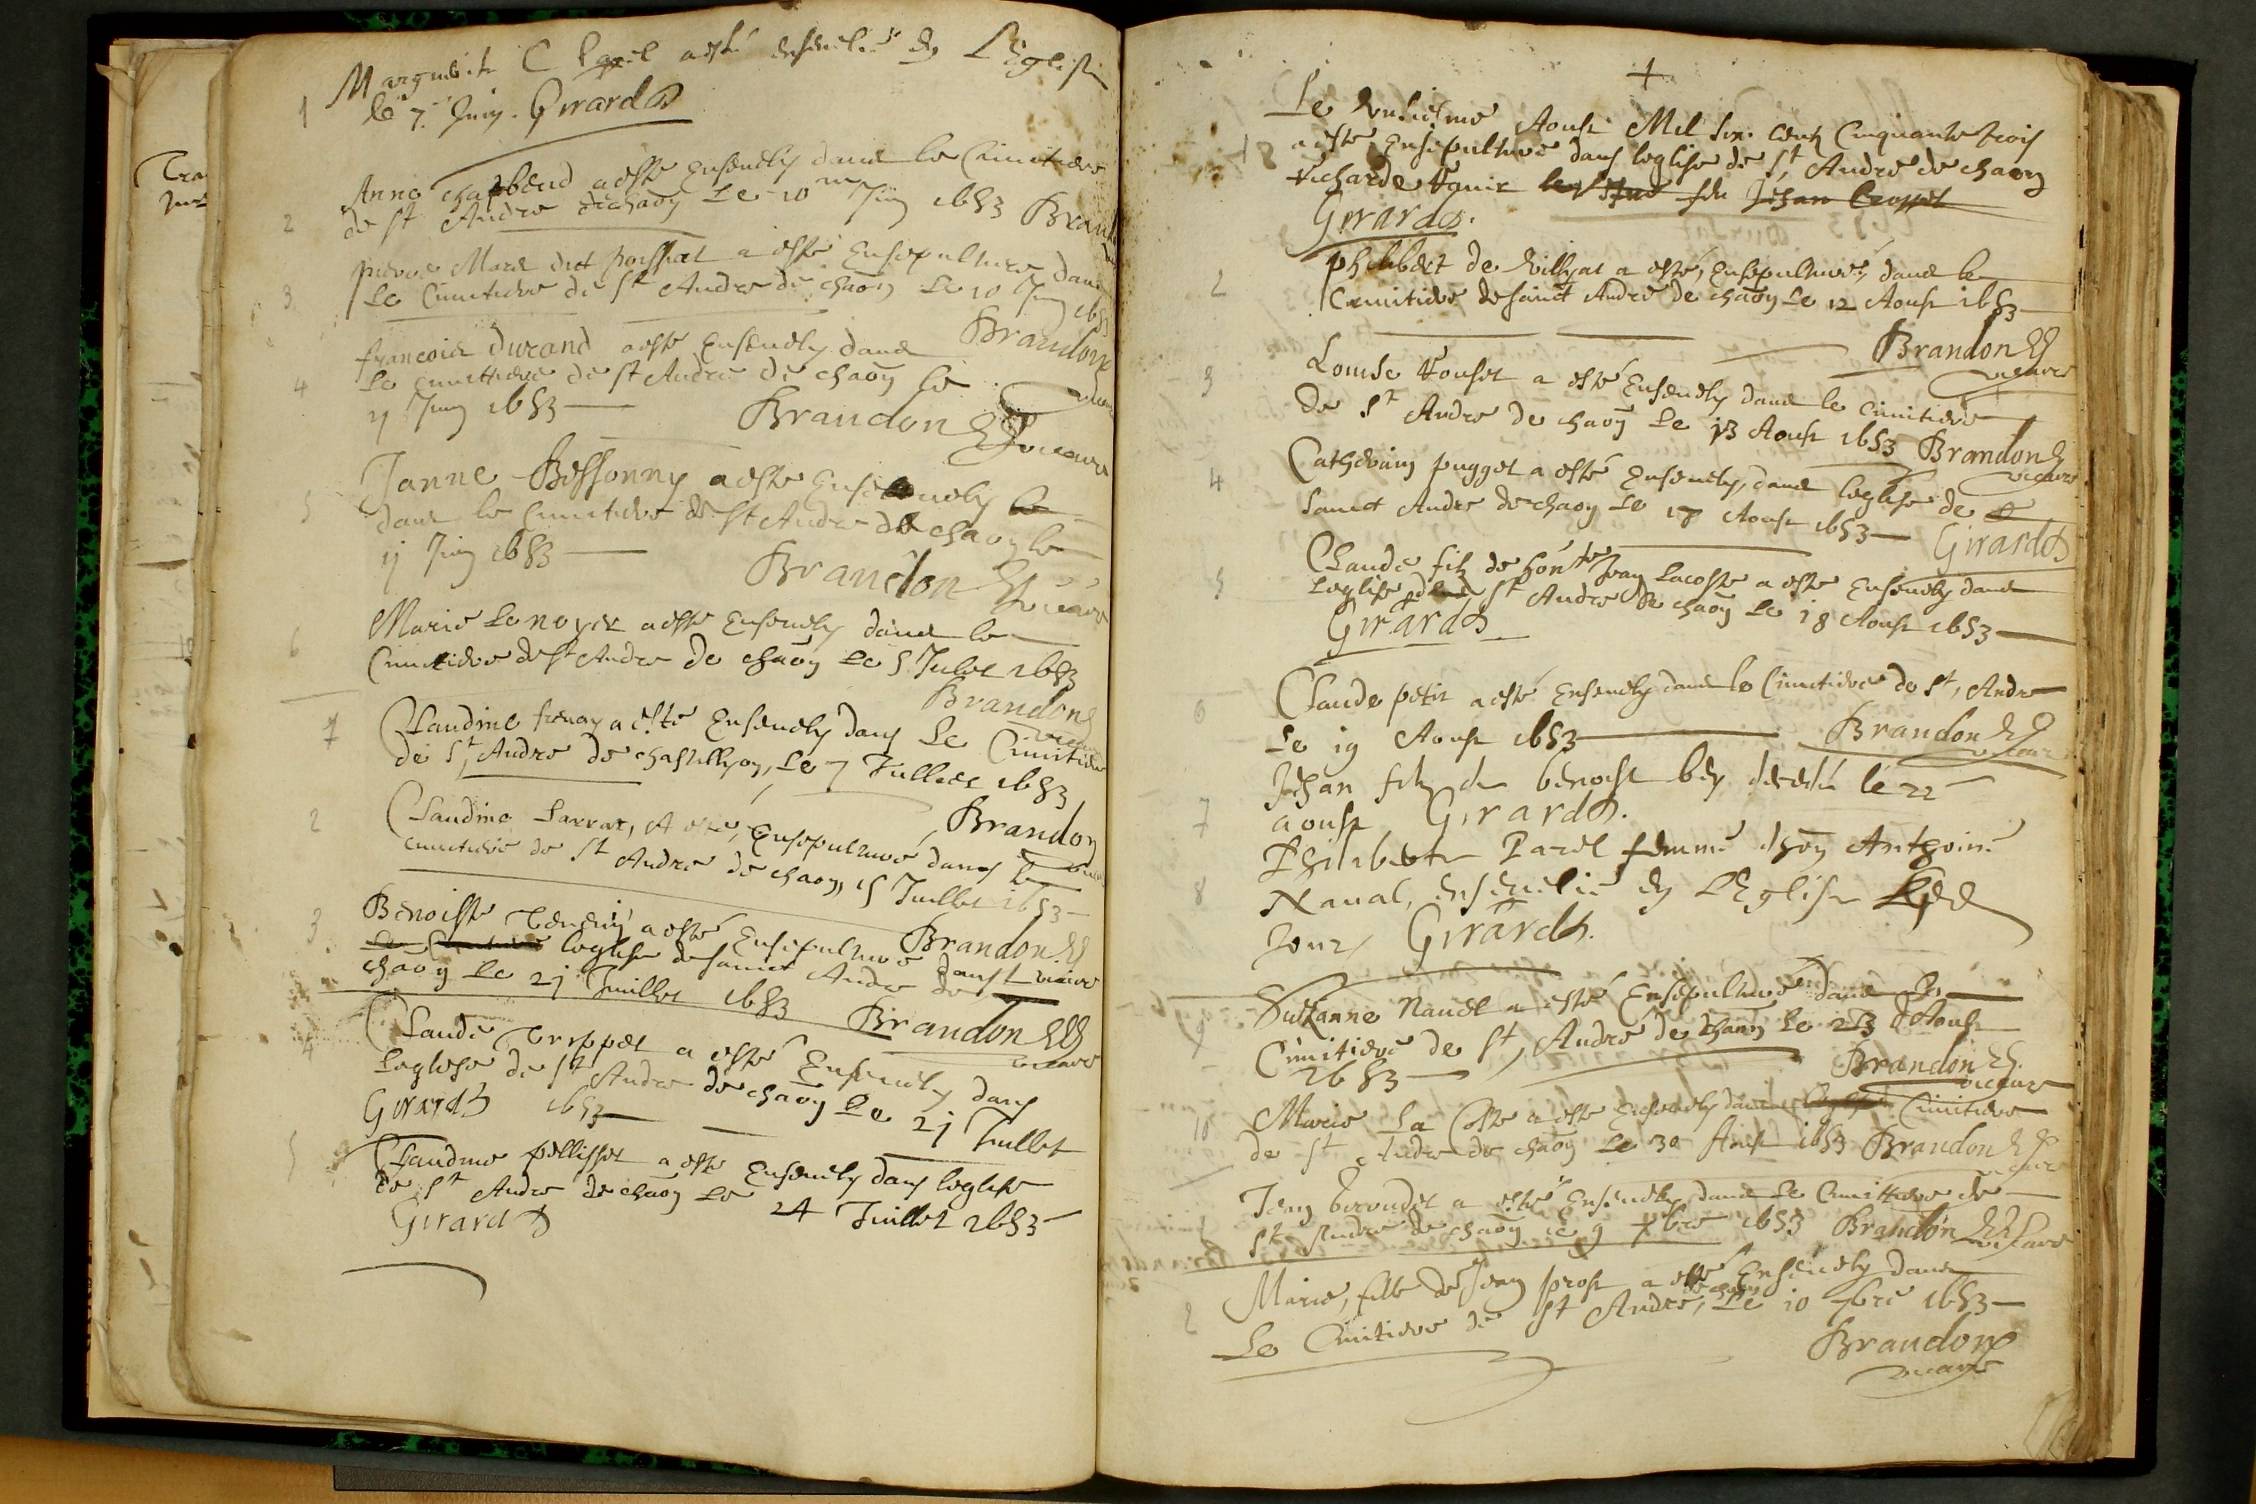 Marguerite C a esté ensevelie en L'Eglise
1 le 7 Juin. Girard
Anne Chapbeud a esté Ensevely dans le Cimitiere
2 de st Andre de chaon Le 10 Juin 1653 Brandon
pierre Marel dit poissiat a esté Ensepulture dans
3 Le Cimitiere de st Andre de chaon Le 10 Juin 1653
Brandon
francois durand a esté Ensevely dans
4 Le cimittiere de st Andre de chaon le
11 Juin 1653 Brandon vicaire
Janne Bessonny a esté Ensevely le
5 dans le Cimitiere de st Andre de chaon le
11 Juin 1653
Brandon vicaire
Marie Lenoyer a esté Ensevely dans le
6 Cimitiere de st Andre de chaon Le 5 Julet 1653
Brandon vicaire
7 Claudine frenay a esté Ensevely dans Le Cimitiere
de St, Andre de chastillyon, Le 7 Jullet 1653
Brandon
2 Claudine Sarrat, A esté, Ensepulturé dans le
cimitiere de St Andre de chaon, 15 Juillet 1653
Brandon vicaire
3 Benoiste a esté Ensepulturé dans
Le Cimitiere leglise de sainct Andre de
chaon Le 21 Juillet 1653 Brandon vicaire
4 Claude Trippet a esté Ensevely dans
Leglise de St Andre de chaon Le 21 Juillet
Girard 1653
5 Claudine pellisset a esté Ensevely dans leglise
de St Andre de chaon Le 24 Juillet 1653
Girard
+
Le Aoust Mil Six cents Cinquante trois
18 a esté Ensepulturé dans leglise de St, Andre de chaon
Richarde feu Jehan
Girard.
philibert de a esté, Ensepulturé, dans le
2 Cimitiere de sainct Andre de chaon Le 12 Aoust 1653
Brandon vicaire
3 Louise Vouset a esté Ensevely dans le cimitiere
de St Andre de chaon Le 13 Aoust 1653 Brandon vicaire
4 Catherine pugget a esté Ensevely, dans leglise de
sainct Andre de chaon Le 17 Aoust 1653 Girard
5 Claude filz de honte Jean Lacoste a esté Ensevely dans
Leglise de St Andre de chaon Le 18 Aoust 1653
Girard
6 Claude petit a esté Ensevely dans le Cimitiere de St, Andre
Le 19 Aoust 1653 Brandon vicaire
Jehan filz de benoist bey decedé le 22
7 aoust Girard.
Philiberte Parel femme d'hon Anthoine
8 Naval, ensevelie en L'Eglise
Jour Girard.
9 Suzanne Naudl a esté Ensepulturé dans Le
Cimitiere de St, Andre de chaon Le 23 Aoust
1653 Brandon vicaire
10 Marie La Coste a esté Ensevely dans Cimitiere
de St Andre de chaon Le 30 Aoust 1653 Brandon vicaire
Jean beroudet a esté Ensevely dans Le Cimittiere de
St Andre de chaon le 9 7bre 1653 Brandon vicaire
2 Marie, fille de Jean prost a esté Ensevely dans
de chaon
Le Cimitiere de St Andre, Le 10 7bre 1653
Brandon
vicaire